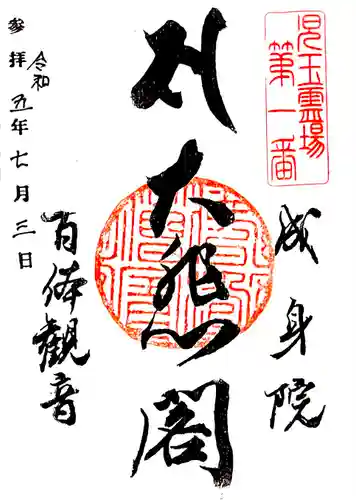 児玉霊場
第一番
成身院
大悲閣
百体観音
令和
参拝 五年七月三日